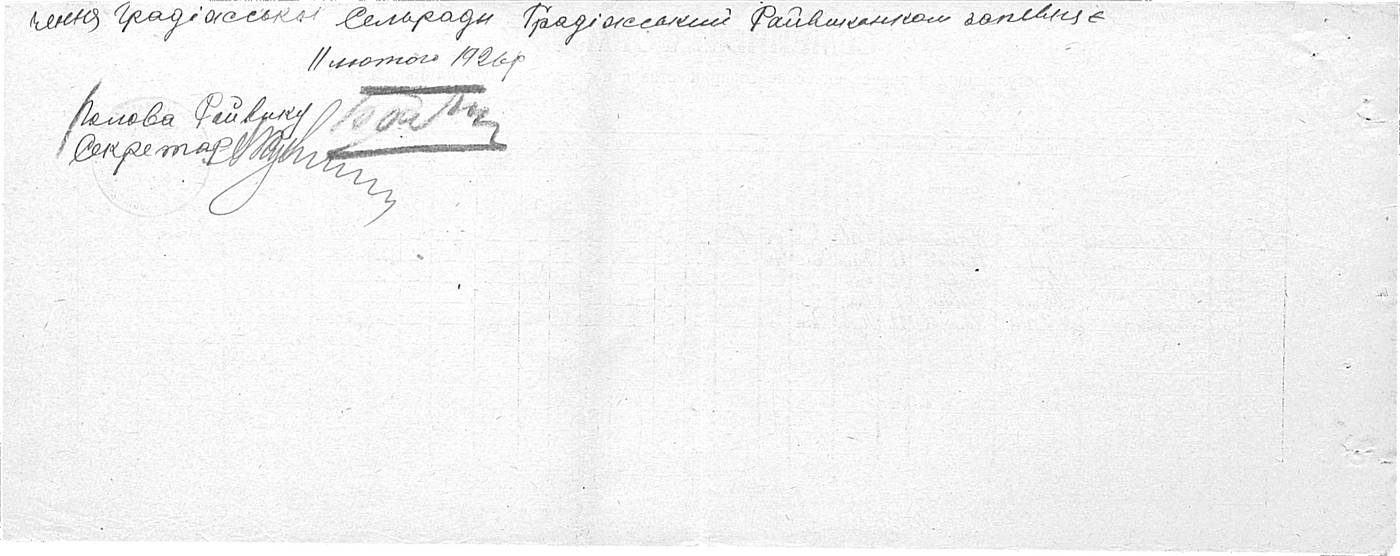 чення Градіасської Сельради Градіасський Райвиконком запевняє
11 лютого 1926 р
Голова Райвику
Секретар